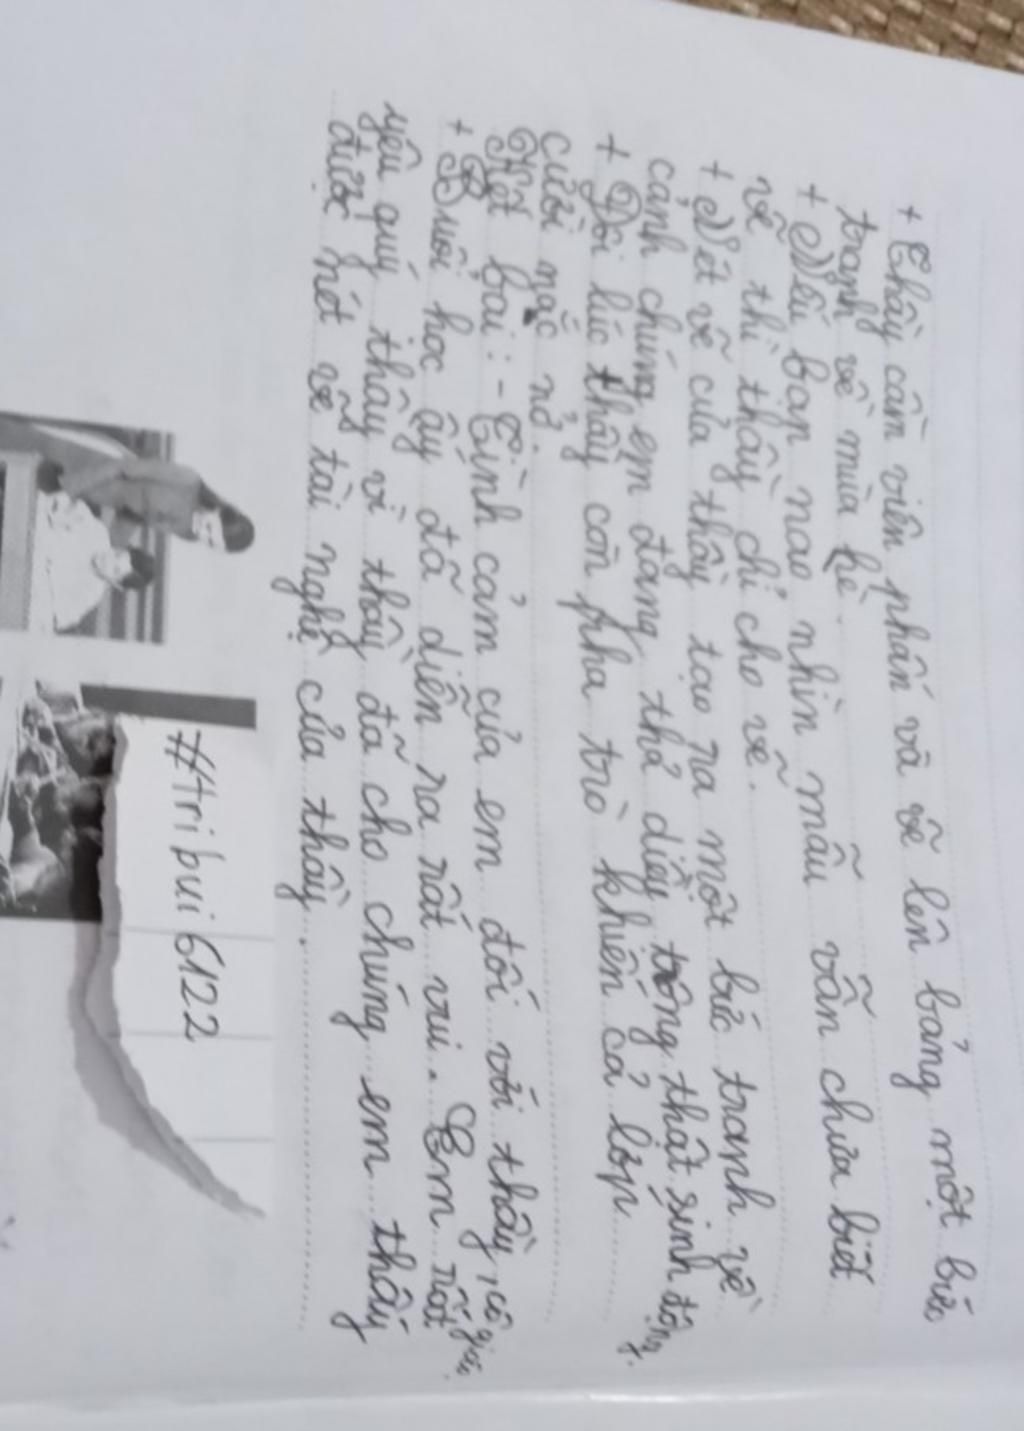 + Thầy cầm viên phấn và vẽ lên bảng một bức
tranh về mùa hè.
+ Nếu bạn nào nhìn mẫu vẫn chưa biết
vẽ thì thầy chỉ cho vẽ.
+ Nét vẽ của thầy tạo ra một bức tranh về
cảnh chúng em đang thả diều trông thật sinh động.
+ Đôi lúc thầy còn pha trò khiến cả lớp
cười nắc nẻ.
Kết bài: - Tình cảm của em đối với thầy, cô giáo.
+ Buổi học ấy đã diễn ra rất vui. Em rất
yêu quý thầy vì thầy đã cho chúng em thấy
được nét vẽ tài nghệ của thầy.
#tribui6122